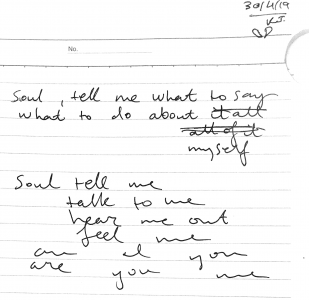 30/4/19
KJ
No.
Soul, tell me what to say
what to do about it all
all of it
myself
Soul tell me
talk to me
hear me out
feel me
am I you
are you me